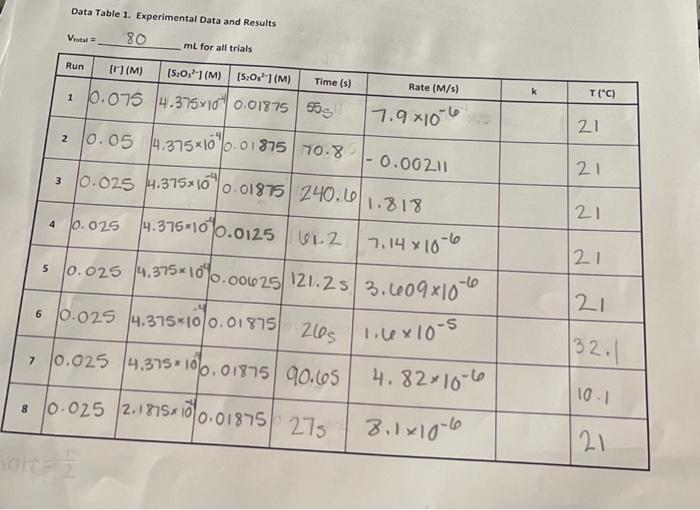 Data Table 1. Experimental Data and Results
Vtotal = 80 mL for all trials
Run [I⁻] (M) [S₂O₃²⁻] (M) [S₂O₈²⁻] (M) Time (s) Rate (M/s) k T (°C)
1 0.075 4.375×10⁻⁴ 0.01875 55s 7.9×10⁻⁶ 21
2 0.05 4.375×10⁻⁴ 0.01875 70.8 - 0.00211 21
3 0.025 4.375×10⁻⁴ 0.01875 240.6 1.818 21
4 0.025 4.375×10⁻⁴ 0.0125 61.2 7.14×10⁻⁶ 21
5 0.025 4.375×10⁻⁴ 0.00625 121.2s 3.609×10⁻⁶ 21
6 0.025 4.375×10⁻⁴ 0.01875 26s 1.6×10⁻⁵ 32.1
7 0.025 4.375×10⁻⁴ 0.01875 90.65 4.82×10⁻⁶ 10.1
8 0.025 2.1875×10⁻⁴ 0.01875 27s 8.1×10⁻⁶ 21